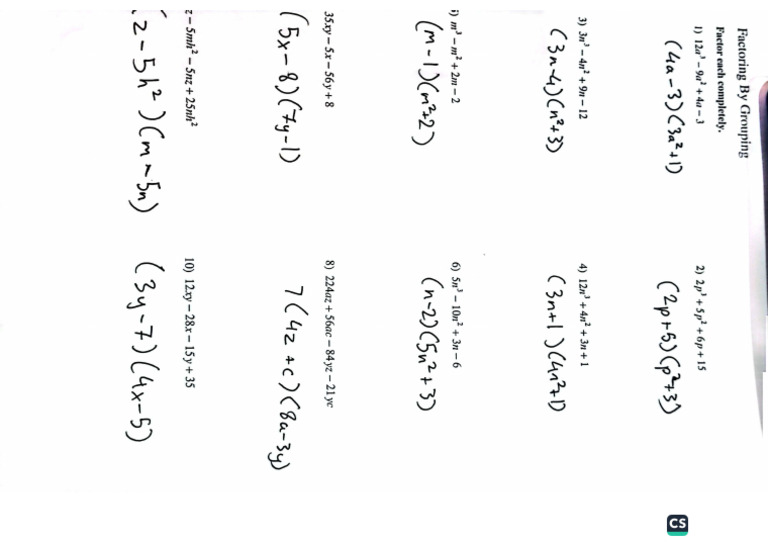 Factoring By Grouping
Factor each completely.
1) 12a³ − 9a² + 4a − 3
(4a-3)(3a²+1)
2) 2p³ + 5p² + 6p + 15
(2p+5)(p²+3)
3) 3n³ − 4n² + 9n − 12
(3n-4)(n²+3)
4) 12n³ + 4n² + 3n + 1
(3n+1)(4n²+1)
) m³ − m² + 2m − 2
(m-1)(m²+2)
6) 5n³ − 10n² + 3n − 6
(n-2)(5n²+3)
35xy − 5x − 56y + 8
(5x-8)(7y-1)
8) 224az + 56ac − 84yz − 21yc
7(4z+c)(8a-3y)
z − 5mh² − 5nz + 25nh²
(z-5h²)(m-5n)
10) 12xy − 28x − 15y + 35
(3y-7)(4x-5)
CS